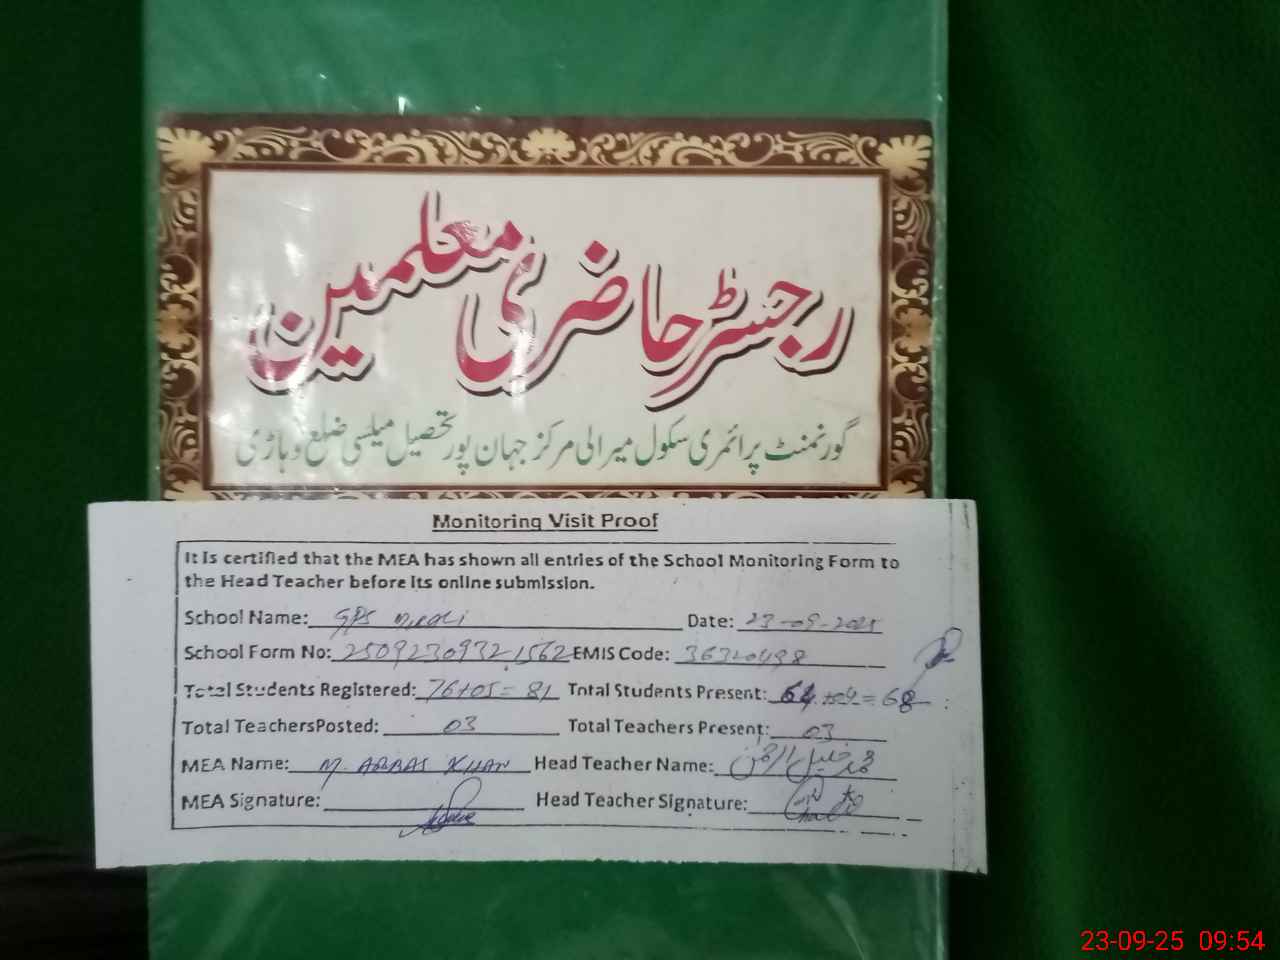 رجسٹر حاضری معلمین
گورنمنٹ پرائمری سکول میرالی مرکز جہان پور تحصیل میلسی ضلع وہاڑی
Monitoring Visit Proof
It is certified that the MEA has shown all entries of the School Monitoring Form to
the Head Teacher before its online submission.
School Name: GPS Mirali Date: 23-09-2025
School Form No: 25092309321562 EMIS Code: 36320498
Total Students Registered: 76+05=81 Total Students Present: 64+04=68
Total TeachersPosted: 03 Total Teachers Present: 03
MEA Name: M. ABBAS KHAN Head Teacher Name: محمد خلیل الرحمن
MEA Signature: Head Teacher Signature:
23-09-25 09:54